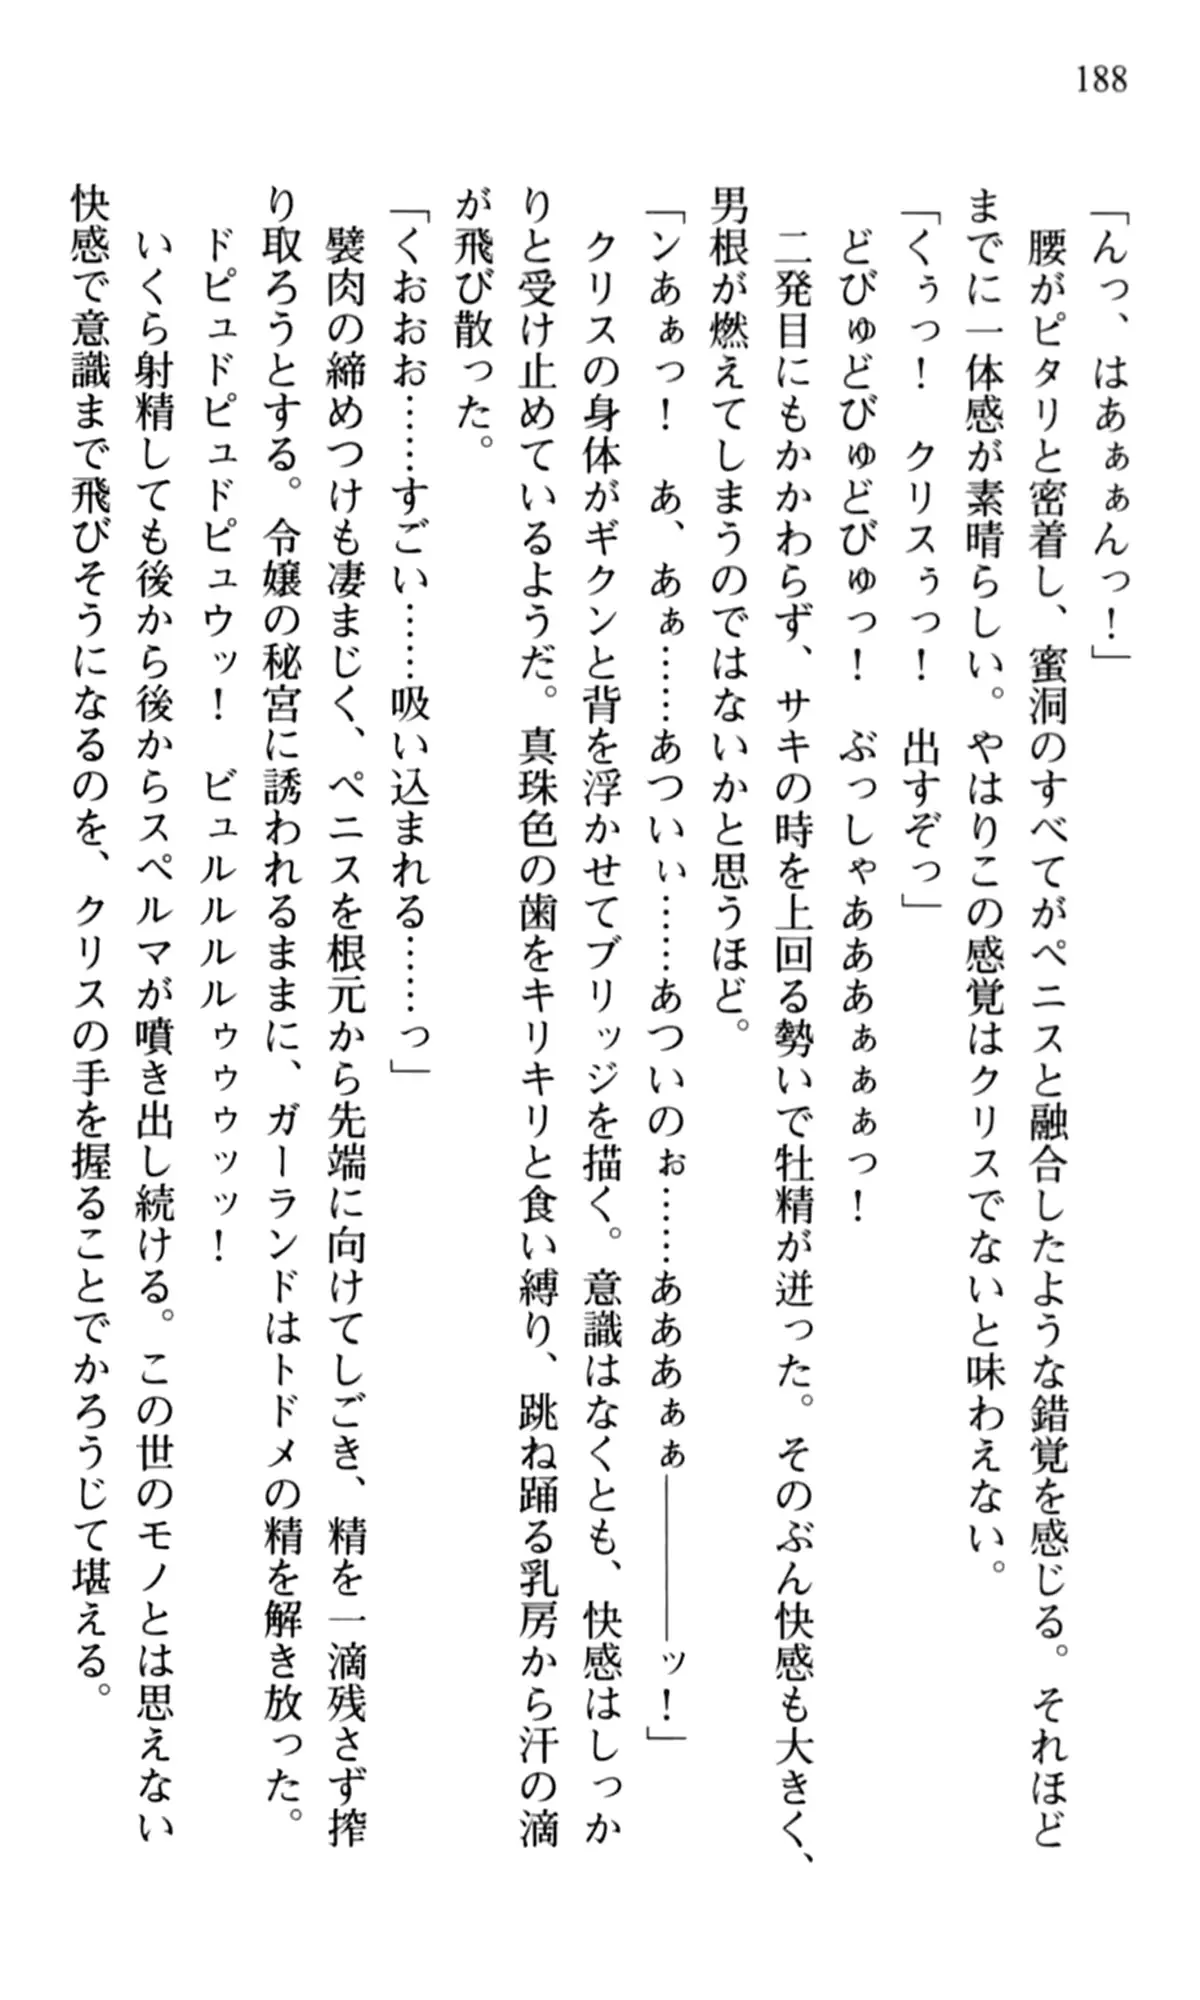 188
「んっ、はあぁぁんっ！」
　腰がピタリと密着し、蜜洞のすべてがペニスと融合したような錯覚を感じる。それほど
までに一体感が素晴らしい。やはりこの感覚はクリスでないと味わえない。
「くぅっ！　クリスぅっ！　出すぞっ」
　どびゅどびゅどびゅっ！　ぶっしゃあああぁぁぁっ！
　二発目にもかかわらず、サキの時を上回る勢いで牡精が迸った。そのぶん快感も大きく、
男根が燃えてしまうのではないかと思うほど。
「ンあぁっ！　あ、あぁ……あついぃ……あついのぉ……あああぁぁ――――ッ！」
　クリスの身体がギクンと背を浮かせてブリッジを描く。意識はなくとも、快感はしっか
りと受け止めているようだ。真珠色の歯をキリキリと食い縛り、跳ね踊る乳房から汗の滴
が飛び散った。
「くおおお……すごい……吸い込まれる……っ」
　襞肉の締めつけも凄まじく、ペニスを根元から先端に向けてしごき、精を一滴残さず搾
り取ろうとする。令嬢の秘宮に誘われるままに、ガーランドはトドメの精を解き放った。
　ドピュドピュドピュウッ！　ビュルルルルゥゥゥッッ！
　いくら射精しても後から後からスペルマが噴き出し続ける。この世のモノとは思えない
快感で意識まで飛びそうになるのを、クリスの手を握ることでかろうじて堪える。